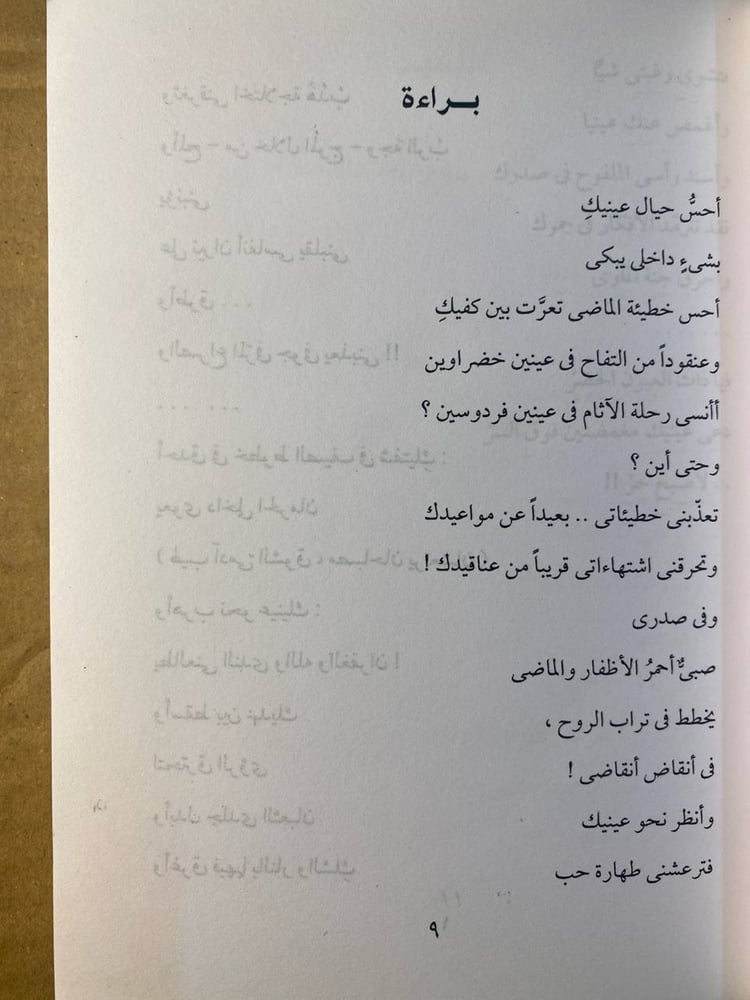 بـراءة
أحسُّ حيال عينيكِ
بشىءٍ داخلى يبكى
أحس خطيئة الماضى تعرَّت بين كفيكِ
وعنقوداً من التفاح فى عينين خضراوين
أأنسى رحلة الآثام فى عينين فردوسين ؟
وحتى أين ؟
تعذّبنى خطيئاتى .. بعيداً عن مواعيدك
وتحرقنى اشتهاءاتى قريباً من عناقيدك !
وفى صدرى
صبىٌّ أحمرُ الأظفار والماضى
يخطط فى تراب الروح ،
فى أنقاض أنقاضى !
وأنظر نحو عينيك
فترعشنى طهارة حب
٩